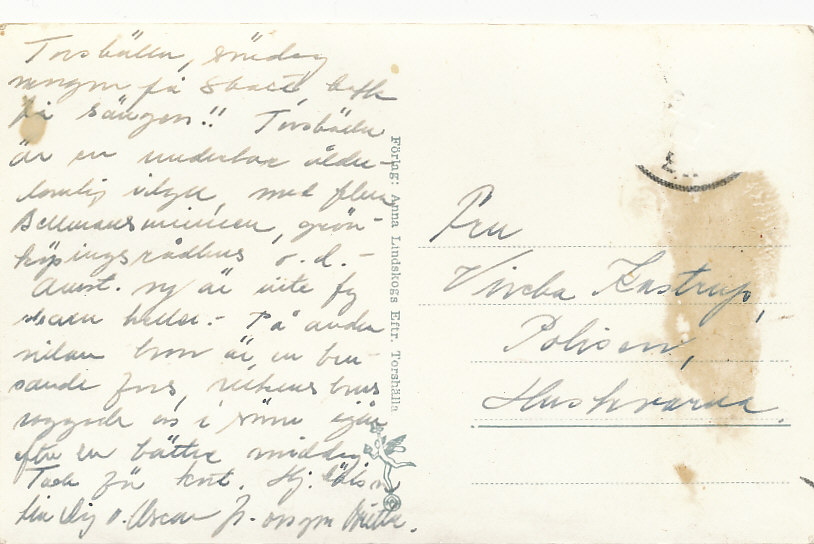 Torshälla, söndag
morgon på 8 kaffe
på sängen!! Torshälla
är en underbar ålder-
domlig idyll, med flera
Bellmansminnen, grön-
köpingsrådhus o. d. -
är inte fy
skam heller. - På andra
sidan bron är en bru-
sande fors, vilkens brus
vaggade oss i sömn igår
efter en bättre middag
Tack för kort. Hj. hälsn
till Dig o. Oscar fr. Britta.
Föring: Anna Lindskogs Eftr. Torshälla
Fru
Viveka Kastrup,
Polisen,
Huskvarna